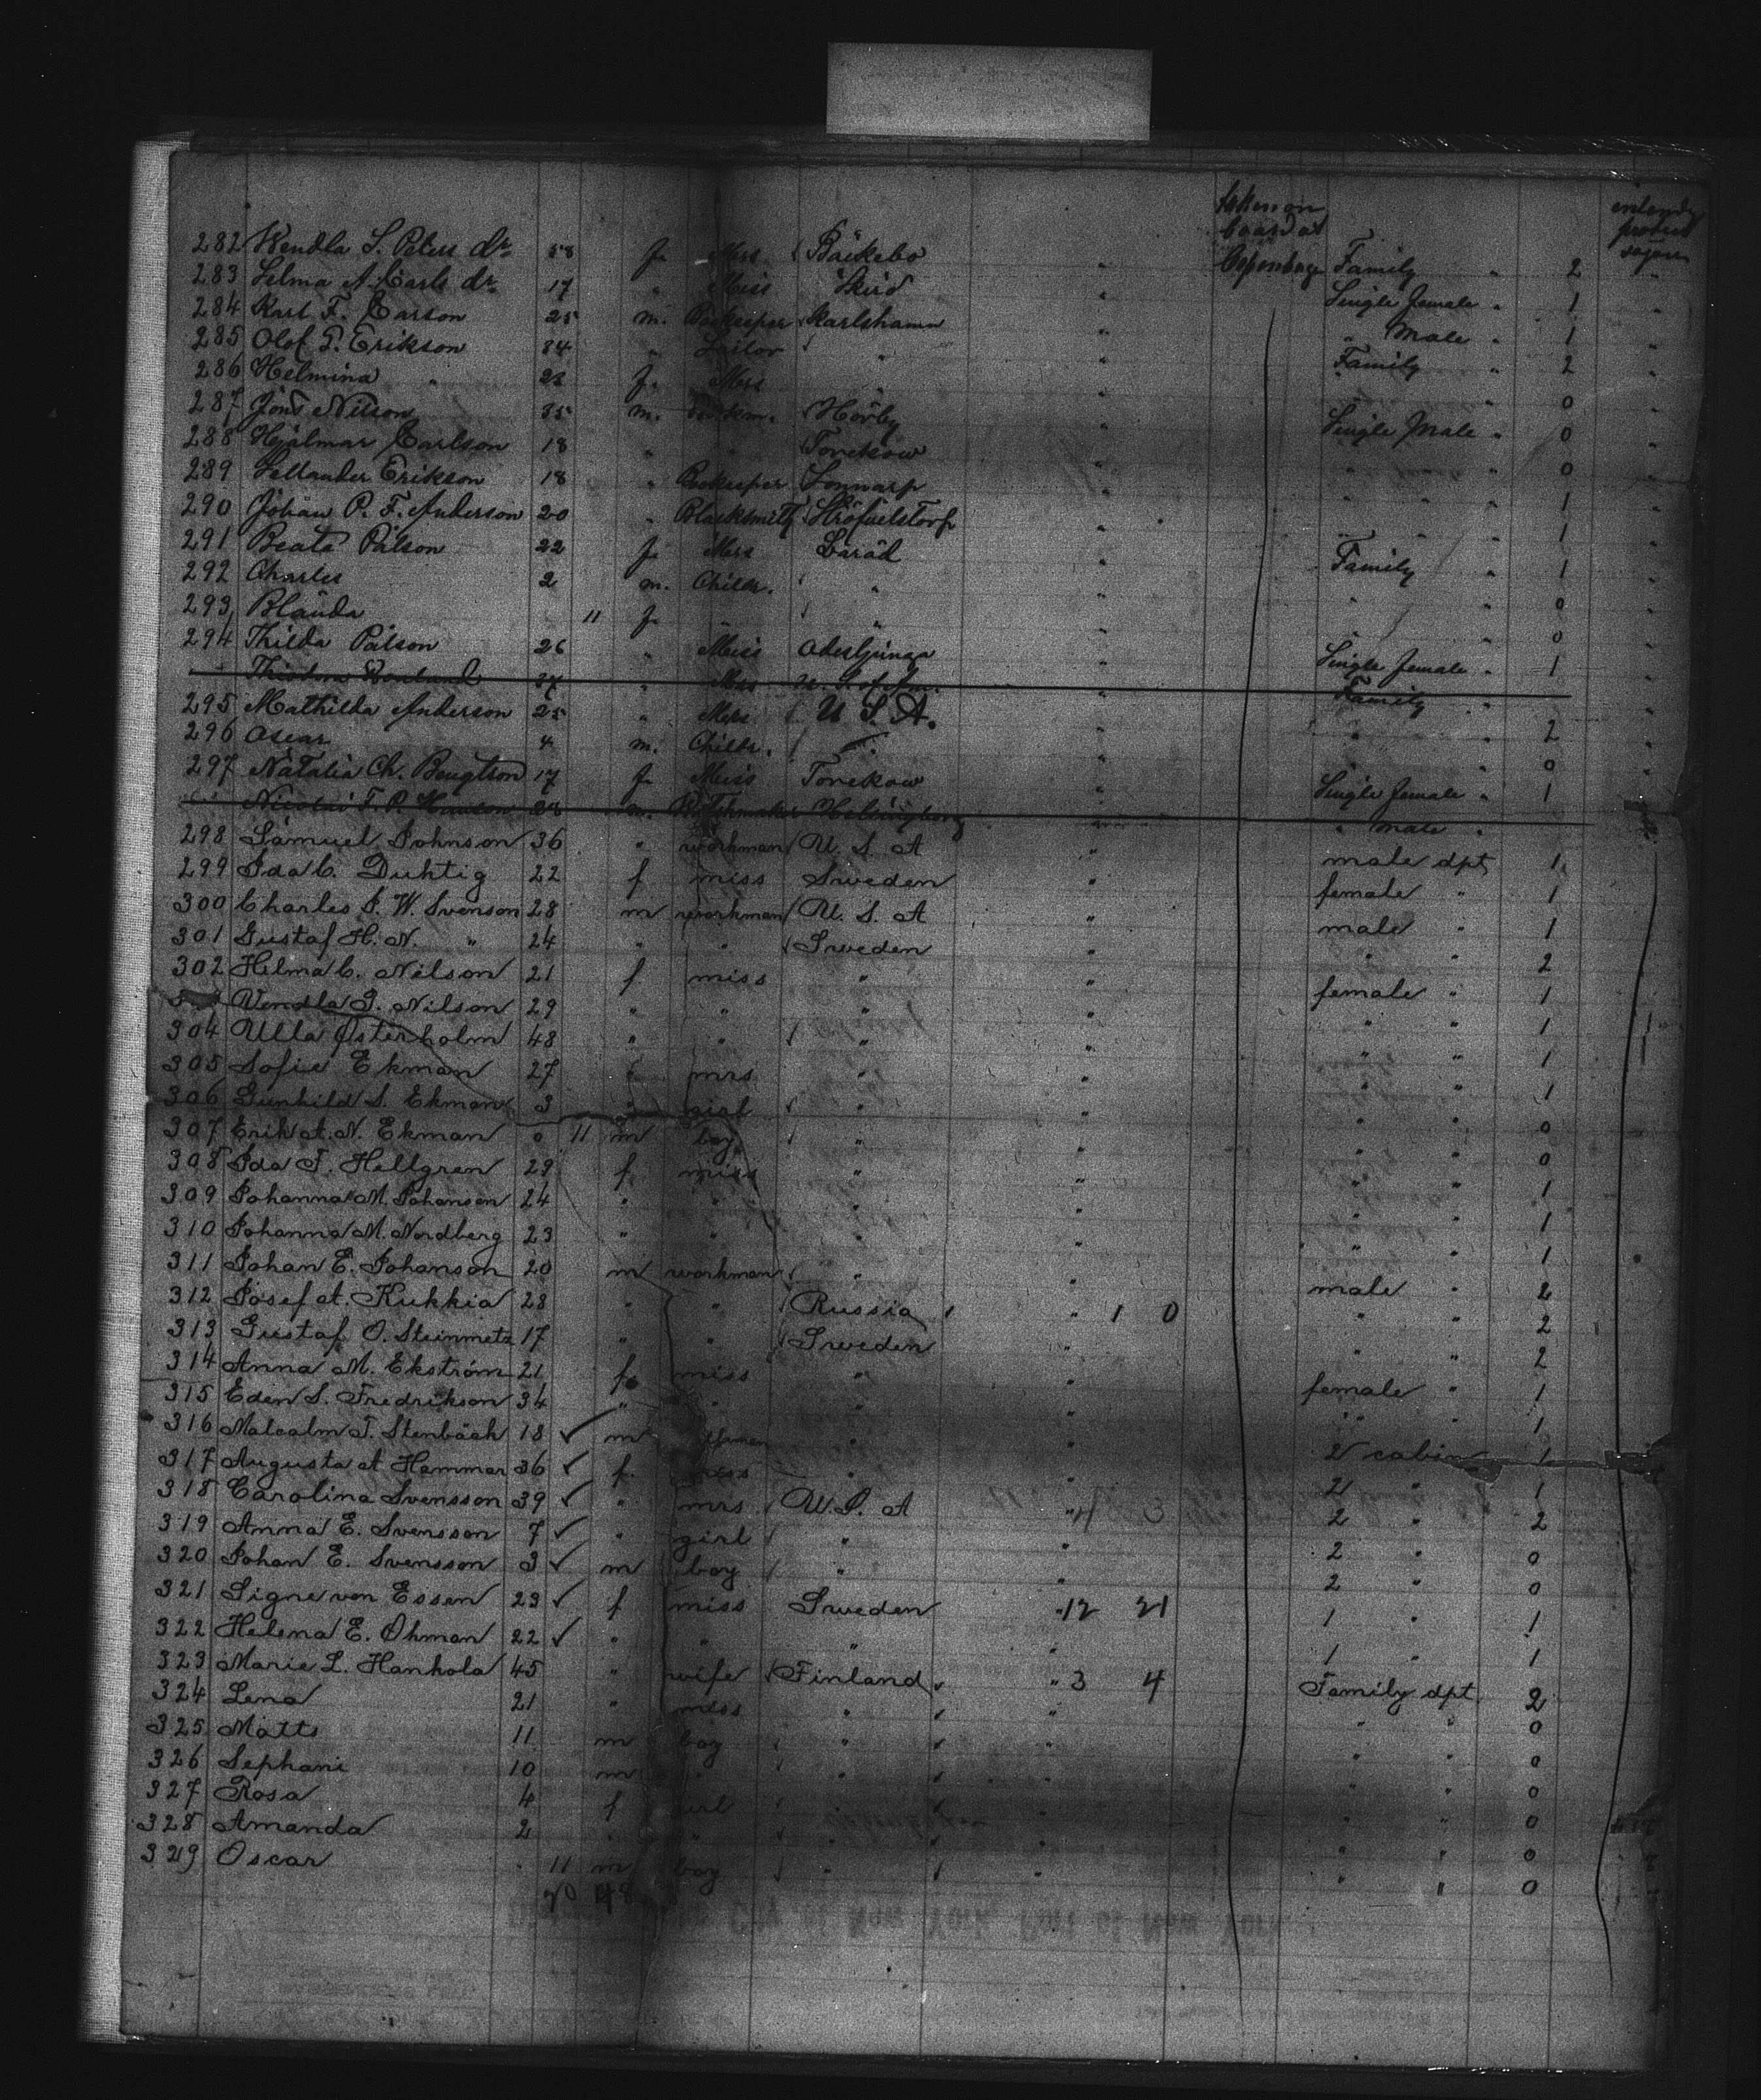 taken on
board at
Copenhagen
282 Kendla S. Peters dr. 58 f. Mrs Bäckebo " Family " 2 "
283 Selma A. Carls dr. 17 " Miss " Single female " 1 "
284 Karl F. Carson 25 m. Karlshamn " " Male " 1 "
285 Olof P. Erikson 34 " Sailor " " Family " 2 "
286 Helmina " 22 f. Mrs " " 0 "
287 Jöns Nilson 35 m. Workm. Hörby " Single Male " 0 "
288 Hjalmar Carlson 18 " Torekow " " " 0 "
289 Erikson 18 " Lonnarp " " " " 1 "
290 Johan P. F. Anderson 20 " Blacksmith " " " " 1 "
291 Beata Pålson 22 f. Mrs " Family " 1 "
292 Charles 2 m. Childr. " " " " 0 "
293 Blända 11 f. " " " " " 0 "
294 Thilda Pålson 26 " Miss " Single female " 1 "
37 " Mrs " Family "
295 Mathilda Anderson 25 " Mrs U S A. " " " 2 "
296 Oscar 4 m. Childr. " " 0 "
297 Natalia Ch. Bengtson 17 f. Miss Torekow " Single female " 1 "
Nicolai F. P. Hanson 28 m. Watchmaker Helsingborg " " male "
298 Samuel Johnson 36 " workman U. S. A " male dpt 1
299 Ida C. Duktig 22 f miss Sweden " female " 1
300 Charles J. W. Svenson 28 m workman U. S. A " male " 1
301 Gustaf H. N. " 24 " " Sweden " " " 2
302 Helma C. Nilson 21 f miss " " female " 1
Vendla J. Nilson 29 " " " " " " 1
304 Ulla Österholm 48 " " " " " " 1
305 Sofie Ekman 27 " mrs " " " " 1
306 Gunhild S. Ekman 3 " girl " " " " 0
307 Erik A. N. Ekman 0 11 m boy " " " " 0
308 Ida T. Hellgren 29 f. miss " " " " 1
309 Johanna M. Johanson 24 " " " " " " 1
310 Johanna M. Nordberg 23 " " " " " " 1
311 Johan E. Johanson 20 m workman " " male " 2
312 Josef A. Kukkia 28 " " Russia " 1 0 " " 2
313 Gustaf O. Steinmetz 17 " " Sweden " " " 2
314 Anna M. Ekström 21 f. miss " " female " 1
315 Eden S. Fredrikson 34 " " " " " " 1
316 Malcolm T. Stenbäck 18 ✓ m " " 2 cabin 1
317 Augusta A Hammar 36 ✓ f. miss " " 2 " 1
318 Carolina Svensson 39 ✓ " mrs U. S. A " 4 3 2 " 2
319 Anna E. Svensson 7 ✓ " girl " " 2 " 0
320 Johan E. Svensson 3 ✓ m boy " " 2 " 0
321 Signe von Essen 23 ✓ f miss Sweden " 12 21 1 " 1
322 Helena E. Öhman 22 ✓ " " " " 1 " 1
323 Marie L. Hankola 45 " wife Finland " 3 4 Family dpt. 2
324 Lena 21 " miss " " " " 0
325 Matts 11 m boy " " " " 0
326 Sephani 10 m " " " " " 0
327 Rosa 4 f girl " " " " 0
328 Amanda 2 " " " " " " 0
329 Oscar 11 m boy " " " " 0